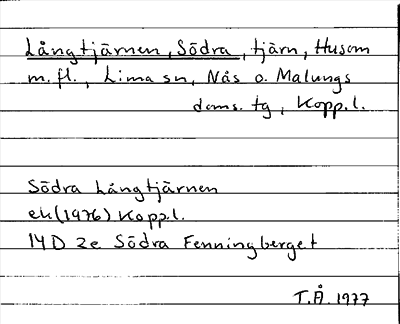 Långtjärnen, Södra, tjärn, Husom
m.fl., Lima sn, Nås o. Malungs
doms. tg, Kopp.l.
Södra Långtjärnen
ek(1976) Kopp.l.
14D 2e Södra Fenningberget
T.Å. 1977